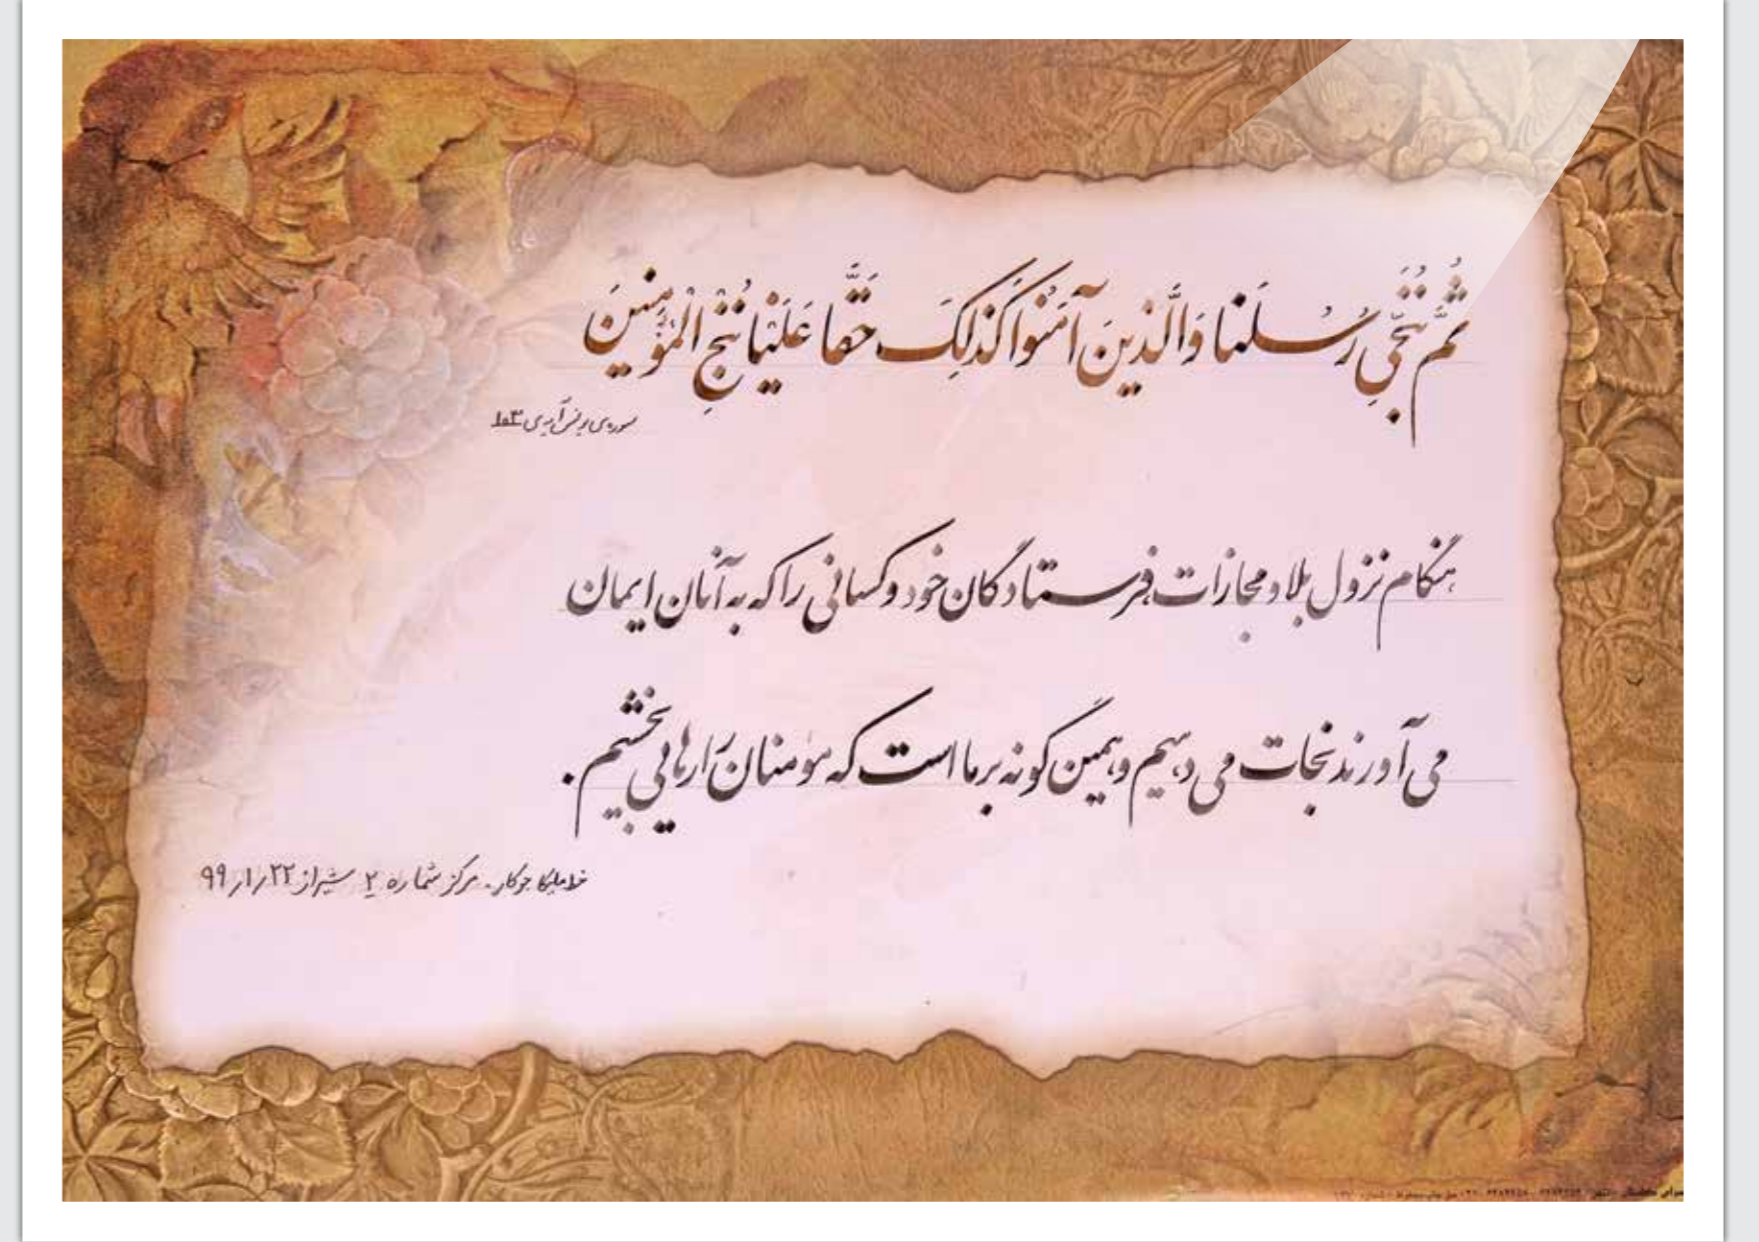 ثُمَّ نُنَجِّي رُسُلَنا وَالَّذينَ آمَنُوا كَذلِكَ حَقًّا عَلَيْنا نُنْجِ الْمُؤْمِنينَ
سوره‌ی یونس آیه‌ی ۱۰۳
هنگام نزول بلا و مجازات، فرستادگان خود و کسانی را که به آنان ایمان
می آورند نجات می دهیم و همین گونه بر ما است که مؤمنان را رهایی بخشیم.
خط ملیکا جوکار. مرکز شماره ۲ شیراز ۹۹/۱/۲۲